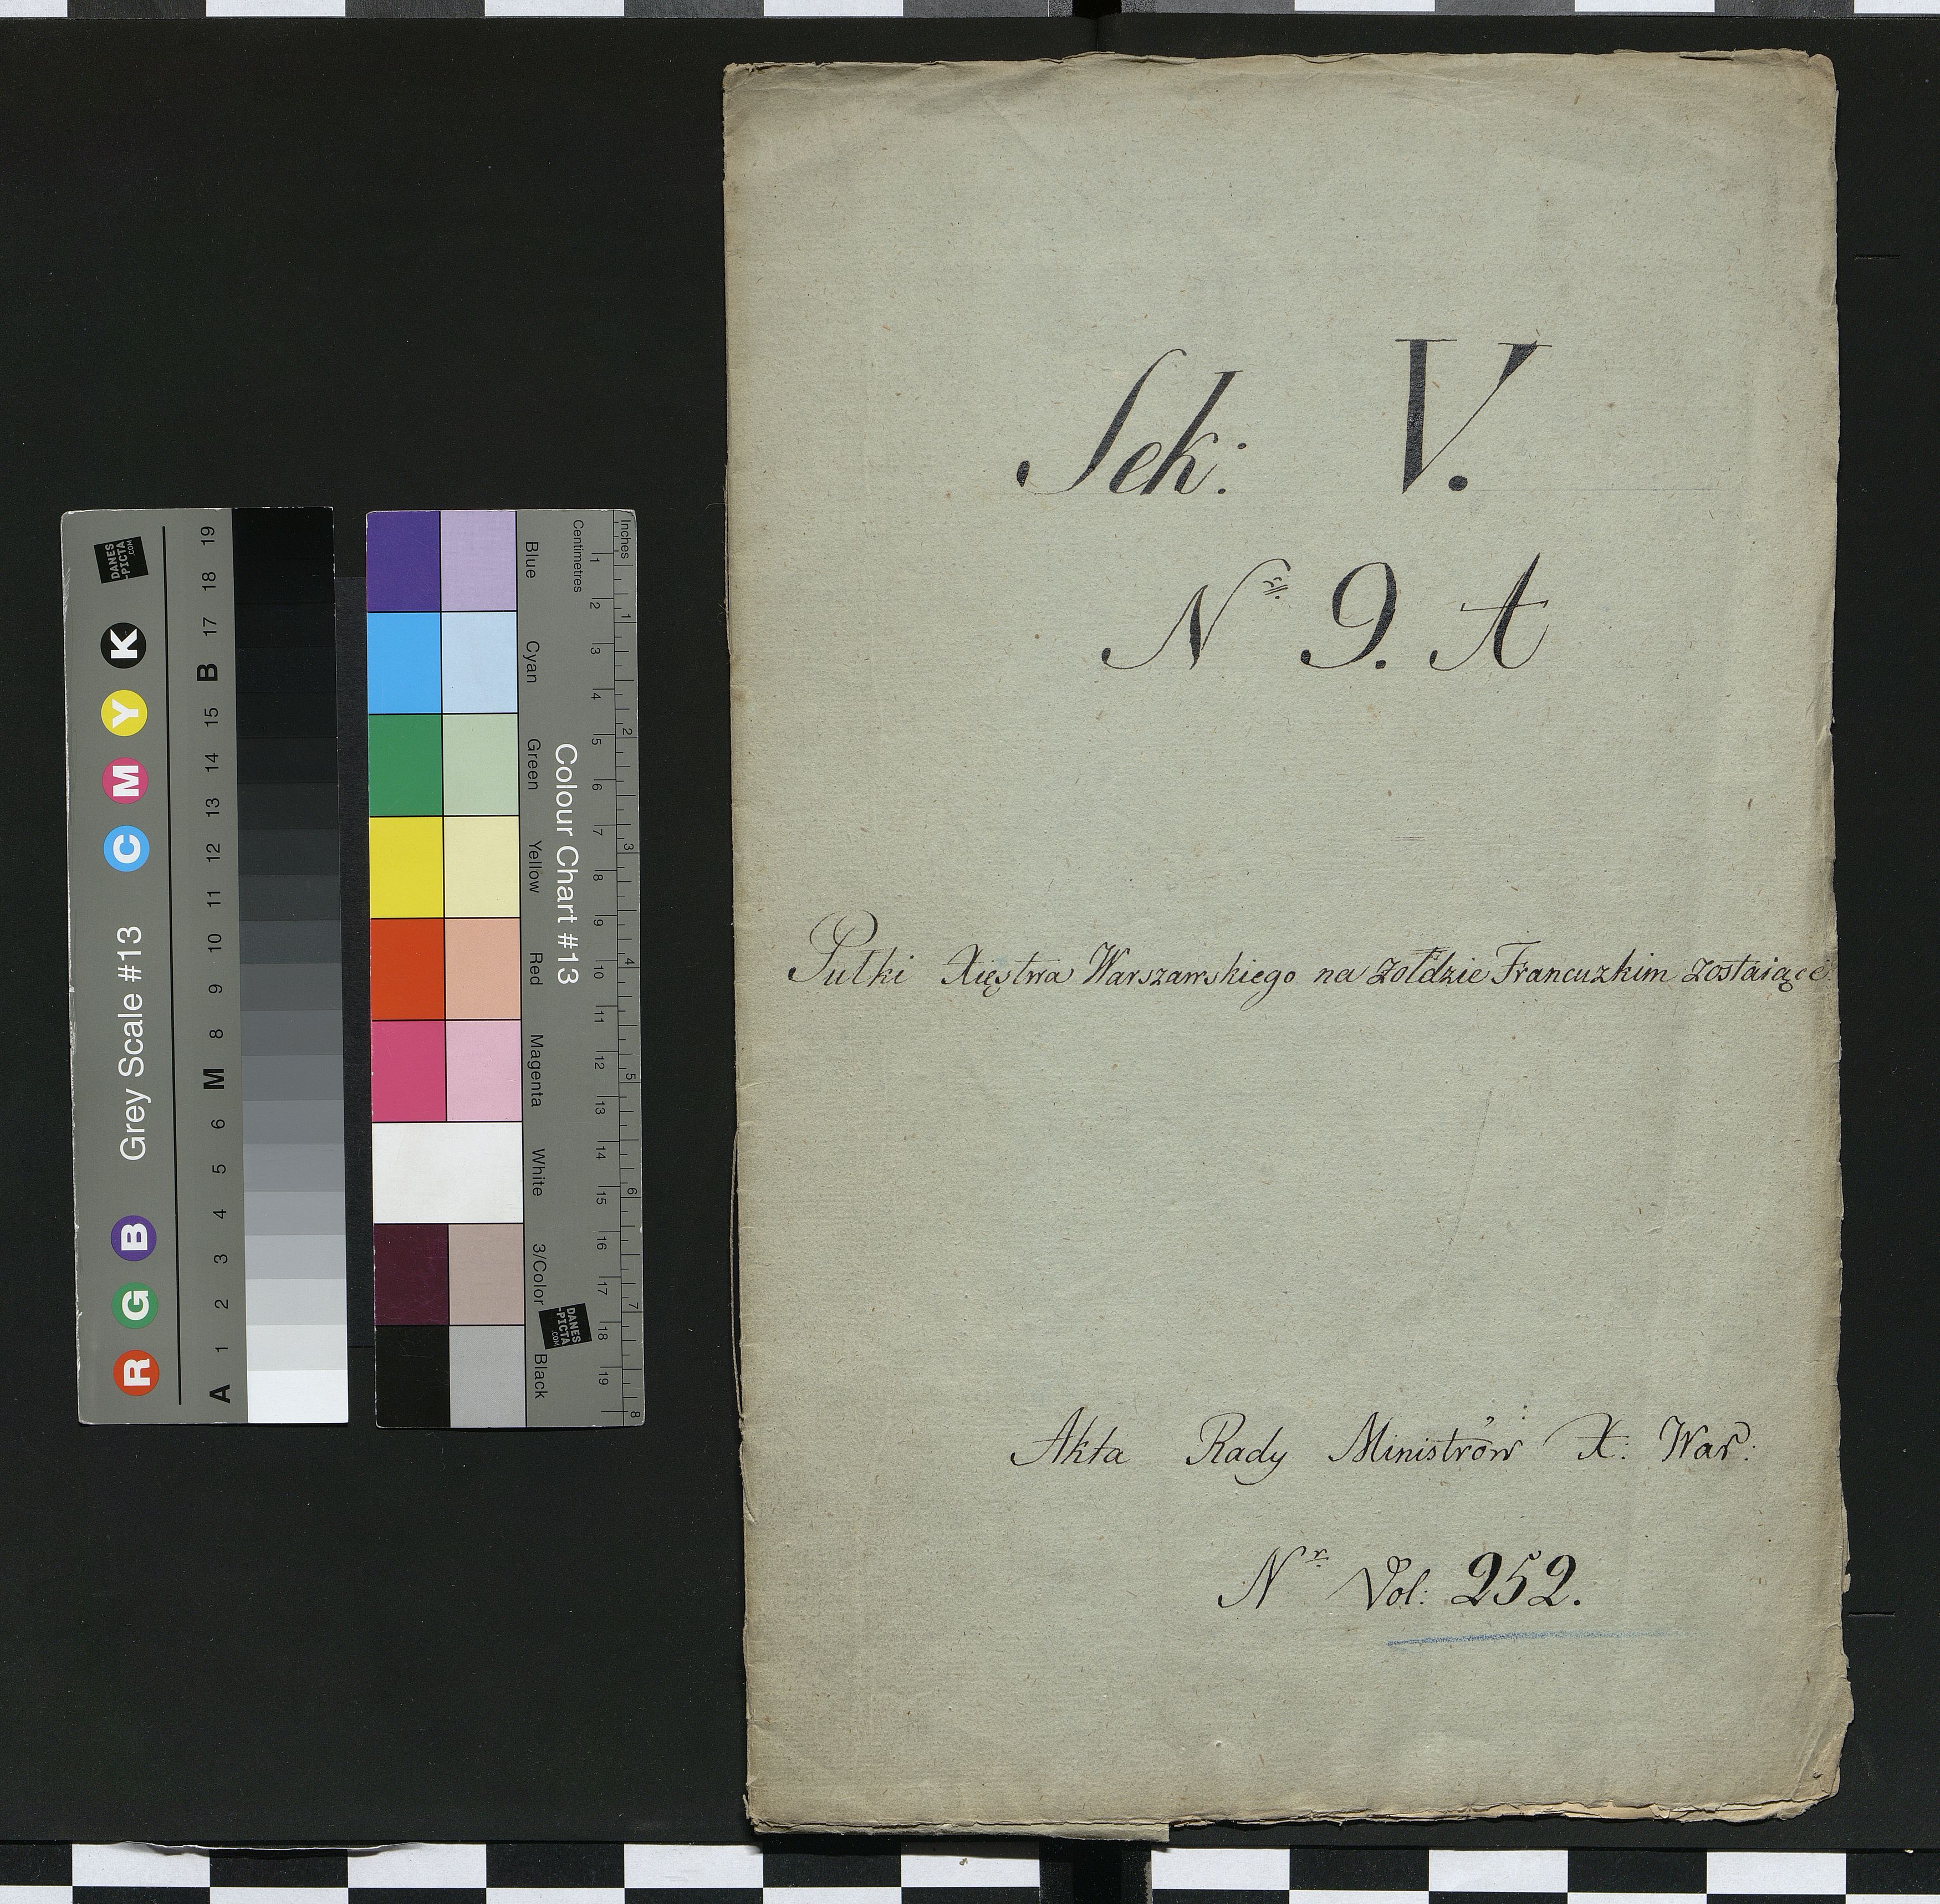 Sek: V.
N 9. A
Pułki Xięstwa Warszawskiego na żołdzie Francuzkim zostaiące
Akta Rady Ministrów X: War:
Nr Vol: 252.
Grey Scale #13
R G B C M Y K
A 1 2 3 4 5 6 M 8 9 10 11 12 13 14 15 B 17 18 19
DANES-PICTA.COM
Colour Chart #13
Blue Cyan Green Yellow Red Magenta White 3/Color Black
Centimetres 1 2 3 4 5 6 7 8 9 10 11 12 13 14 15 16 17 18 19
Inches 1 2 3 4 5 6 7 8
DANES-PICTA.COM